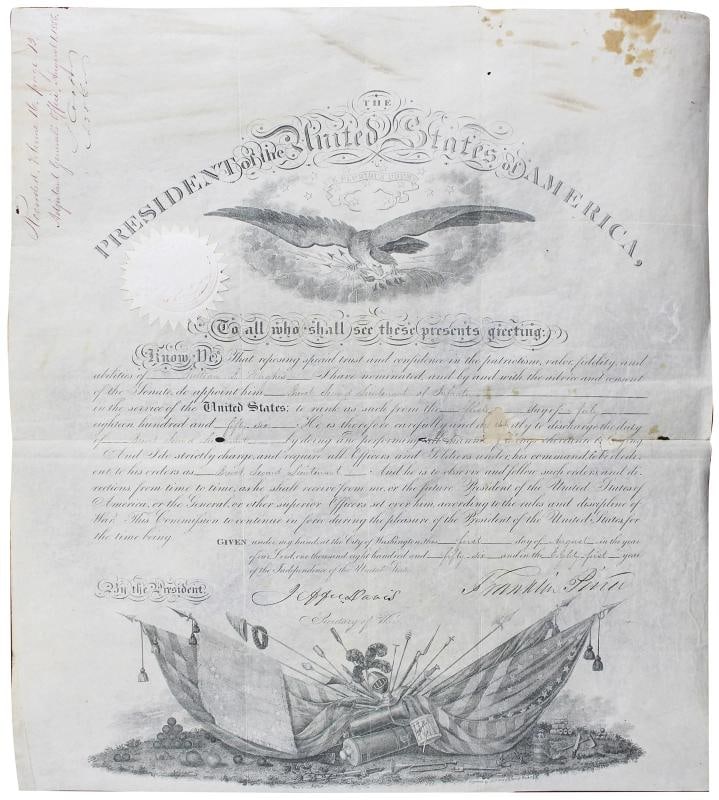 Recorded, Volume 16, page 13
Adjutant General's Office, August 1, 1856
THE
PRESIDENT of the United States of AMERICA,
E PLURIBUS UNUM
To all who shall see these presents greeting:
Know Ye, That reposing special trust and confidence in the patriotism, valor, fidelity, and
abilities of I have nominated, and by and with the advice and consent
of the Senate, do appoint him Brevet Second Lieutenant of
in the service of the United States: to rank as such from the day of July
eighteen hundred and fifty six He is therefore carefully and to discharge the duty
of Brevet Second by doing and performing all
And I do strictly charge, and require all Officers and Soldiers under his command, to be obedi-
ent to his orders as Brevet Second Lieutenant And he is to observe and follow such orders, and di-
rections, from time to time, as he shall receive from me, or the future President of the United States of
America, or the General, or other superior Officers set over him, according to the rules and discipline of
War. This Commission to continue in force during the pleasure of the President of the United States, for
the time being.
GIVEN under my hand, at the City of Washington, this first day of August in the year
of our Lord, one thousand eight hundred and fifty-six and in the Eighty first year
of the Independence of the United States.
By the President
Franklin Pierce
Jeffer Davis
Secretary of War